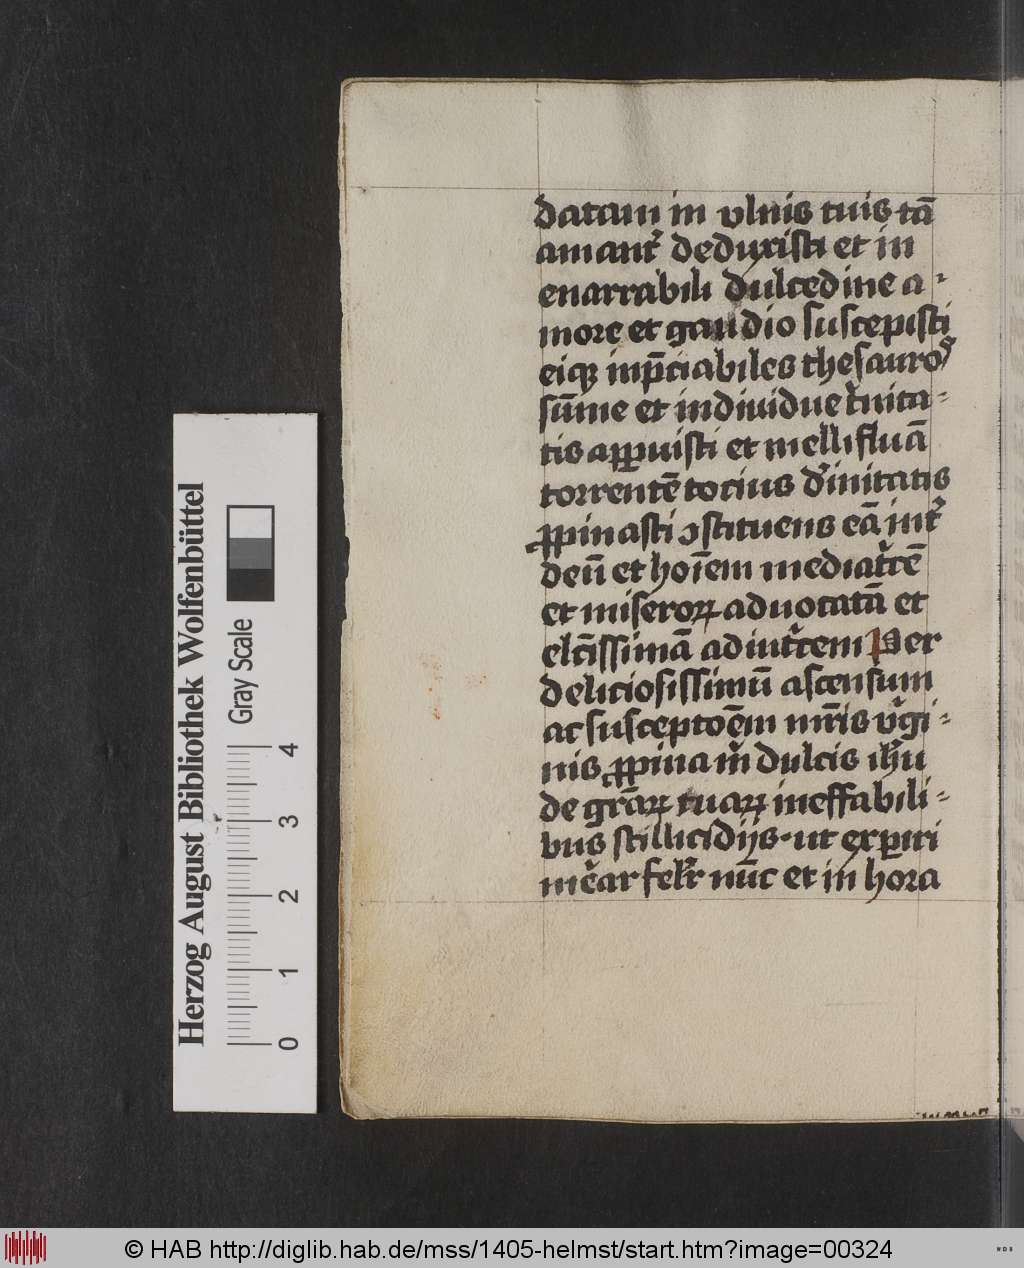 datam in vlnis tuis tā
amant᷑ deduxisti et in
enarrabili dulcedine a-
more et gaudio suscepisti
eiqꝫ inp̄ciabiles thesauroꝝ
sūme et indiuidue t᷑nita-
tis ap̱puisti et mellifluā
torrentē tocius d᷑initatis
ꝓpinasti ꝯstituens eā int᷑
deū et hoīem mediat᷑cē
et miseroꝝ aduocatā et
elc̄issimā adiut᷑cem Per
deliciosissimū ascensum
ac susceptoēm mr̄is v᷑gi-
nis ꝓpina m᷑ dulcis ih᷑u
de gr̄aꝝ tuaꝝ ineffabili-
bus stillicidijs · ut exꝑiri
me᷑ar felr᷑ nūc et in hora
Herzog August Bibliothek Wolfenbüttel
Gray Scale
0 1 2 3 4
© HAB http://diglib.hab.de/mss/1405-helmst/start.htm?image=00324